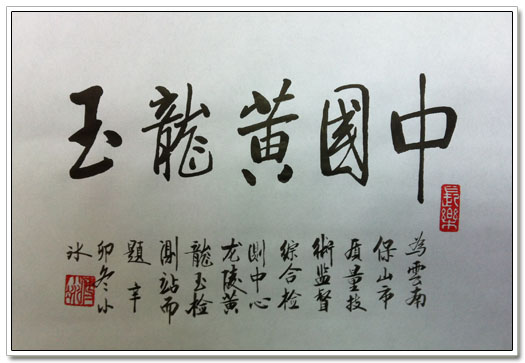 中國黄龍玉
為雲南
保山市
质量技
術監督
綜合检
測中心
龙陵黄
龍玉检
測站而
題 辛
卯冬小
冰
長樂